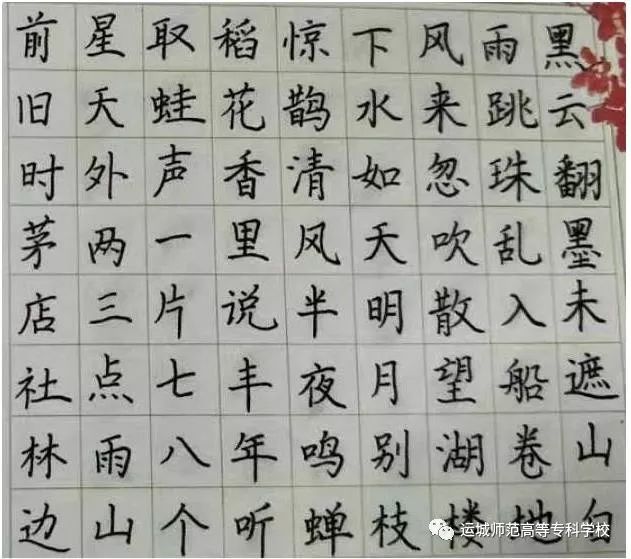 黑云翻墨未遮山白
雨跳珠乱入船卷地
风来忽吹散望湖楼
下水如天明月别枝
惊鹊清风半夜鸣蝉
稻花香里说丰年听
取蛙声一片七八个
星天外两三点雨山
前旧时茅店社林边
运城师范高等专科学校